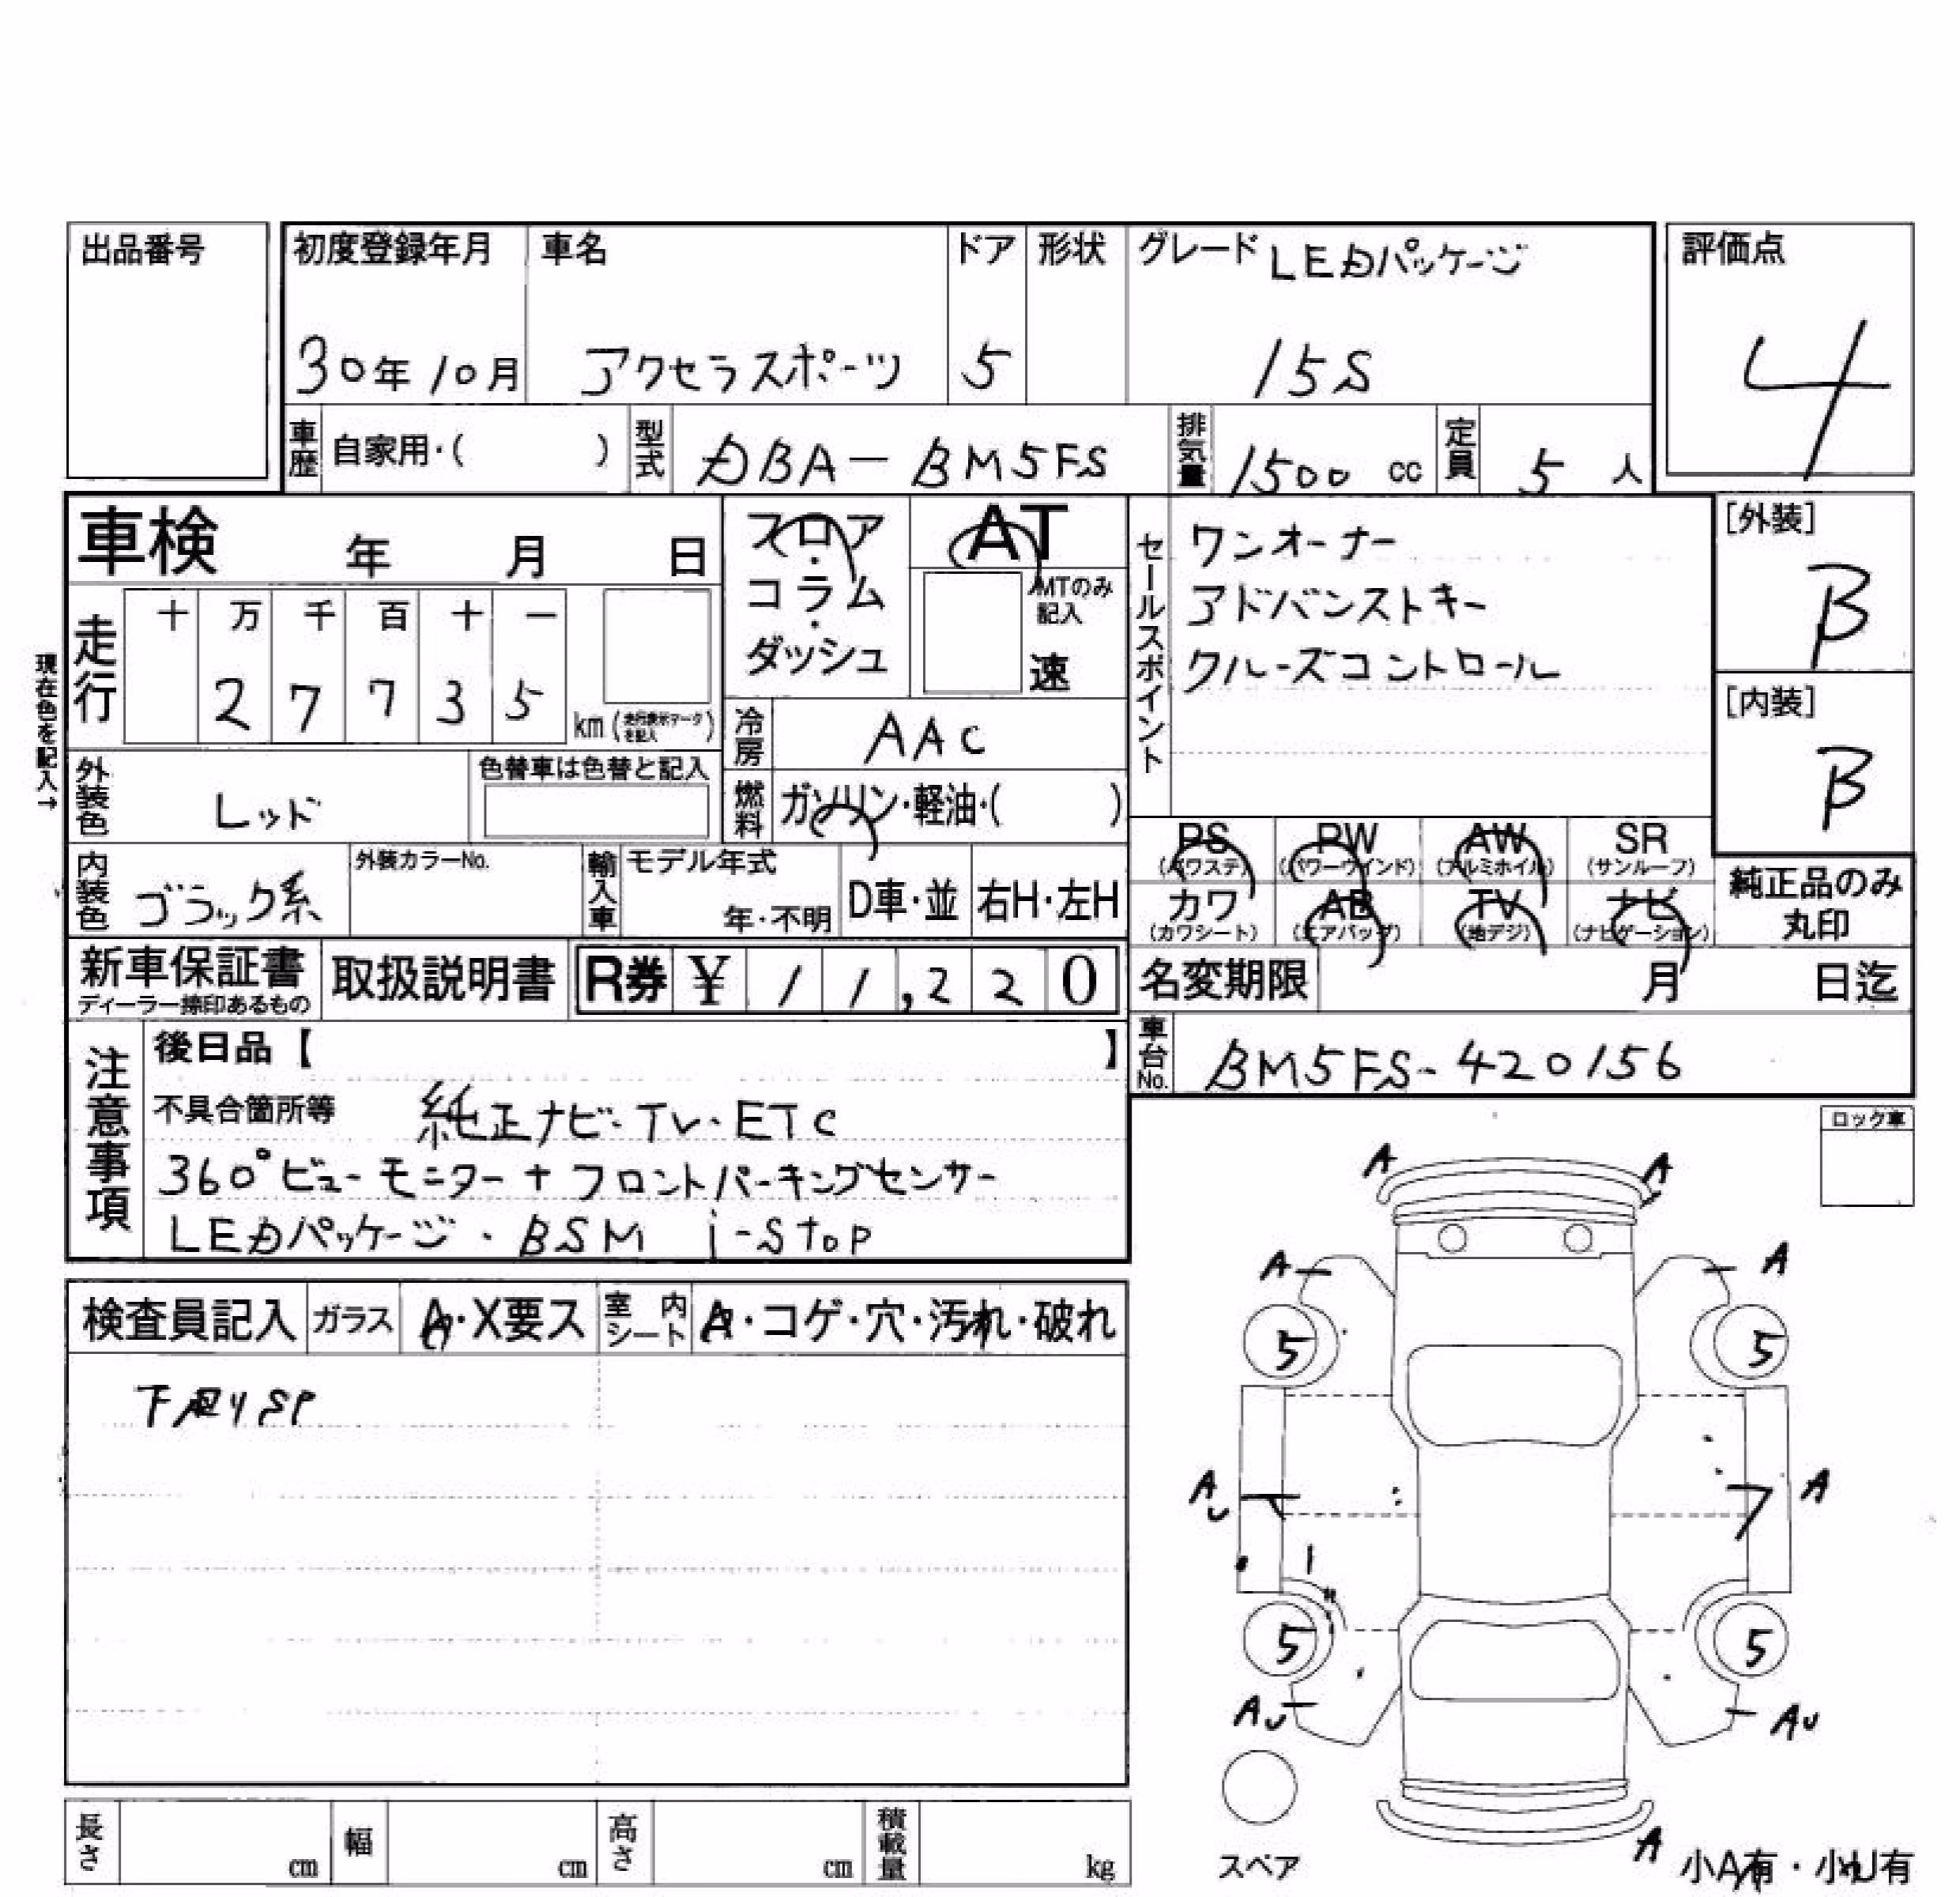 出品番号
初度登録年月 車名 ドア 形状 グレード LEDパッケージ 評価点
30年10月 アクセラスポーツ 5 15S 4
車歴 自家用・( ) 型式 DBA-BM5FS 排気量 1500 cc 定員 5 人
車検 年 月 日
フロア・コラム・ダッシュ
AT
MTのみ記入
速
セールスポイント
ワンオーナー
アドバンストキー
クルーズコントロール
[外装]
B
[内装]
B
現在色を記入→
走行
十 万 千 百 十 一
2 7 7 3 5
km (走行表示マークを記入)
冷房 AAC
外装色 レッド 色替車は色替と記入
燃料 ガソリン・軽油・( )
PS (パワステ) PW (パワーウインド) AW (アルミホイル) SR (サンルーフ)
カワ (カワシート) AB (エアバッグ) TV (地デジ) ナビ (ナビゲーション)
純正品のみ丸印
内装色 ブラック系 外装カラーNo. 輸入車 モデル年式 年・不明 D車・並 右H・左H
新車保証書 ディーラー捺印あるもの 取扱説明書 R券 ¥ 11,220
名変期限 月 日迄
車台No. BM5FS-420156
注意事項
後日品【 】
不具合箇所等 純正ナビ・TV・ETC
360°ビューモニター+フロントパーキングセンサー
LEDパッケージ・BSM i-stop
ロック車
検査員記入 ガラス A・X要ス 室内シート A・コゲ・穴・汚れ・破れ
下廻りSP
A A
A A
5 5
AU A
5 5
AU AU
A
スペア
小A有・小U有
長さ cm 幅 cm 高さ cm 積載量 kg